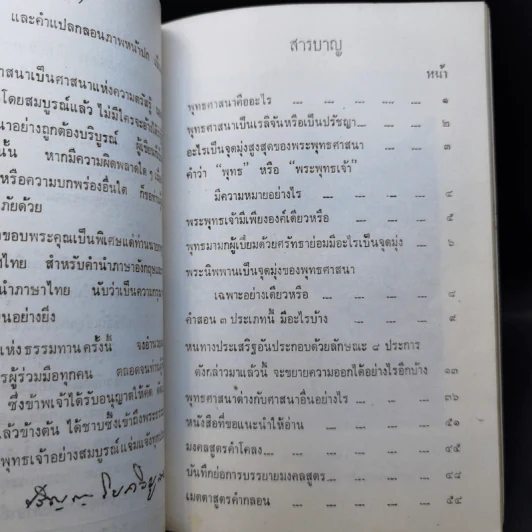 และคำแปลกลอนภาพหน้าปก
าสนาเป็นศาสนาแห่งความตรัสรู้
โดยสมบูรณ์แล้ว ไม่มีใครจะอ้างได้
นาอย่างถูกต้องบริบูรณ์
นั้น หากมีความผิดพลาดใด ๆ
หรือความบกพร่องอื่นใด ก็ขอ
ภัยด้วย
ขอบพระคุณเป็นพิเศษแด่ท่านนาย
ทย สำหรับคำนำภาษาอังกฤษและ
นำภาษาไทย นับว่าเป็นความกรุณา
นอย่างยิ่ง
แห่งธรรมทานครั้งนี้ จงอำนวย
รผู้ร่วมมือทุกคน ตลอดจนท่าน
ซึ่งข้าพเจ้าได้รับอนุญาตให้คัด
ล้วข้างต้น ได้ซาบซึ้งเข้าถึงพระธรรม
พุทธเจ้าอย่างสมบูรณ์แจ่มแจ้งทุก
สารบาญ
หน้า
พุทธศาสนาคืออะไร ... ... ... ... ... ๑
พุทธศาสนาเป็นเรลิจันหรือเป็นปรัชญา ... ... ... ๒
อะไรเป็นจุดมุ่งสูงสุดของพระพุทธศาสนา ... ... ๓
คำว่า “พุทธ” หรือ “พระพุทธเจ้า”
มีความหมายอย่างไร ... ... ... ... ๔
พระพุทธเจ้ามีเพียงองค์เดียวหรือ ... ... ... ๕
พุทธมามกผู้เปี่ยมด้วยศรัทธาย่อมมีอะไรเป็นจุดมุ่ง ... ๗
พระนิพพานเป็นจุดมุ่งของพุทธศาสนา
เฉพาะอย่างเดียวหรือ ... ... ... ... ๘
คำสอน ๓ ประเภทนี้ มีอะไรบ้าง ... ... ... ๘
หนทางประเสริฐอันประกอบด้วยลักษณะ ๘ ประการ
ดังกล่าวมาแล้วนี้ จะขยายความออกได้อย่างไรอีกบ้าง ๑๓
พุทธศาสนาต่างกับศาสนาอื่นอย่างไร ... ... ... ๓๖
หนังสือที่ขอแนะนำให้อ่าน ... ... ... ... ๔๑
มงคลสูตรคำโคลง ... ... ... ... ... ๔๕
บันทึกย่อการบรรยายมงคลสูตร ... ... ... ๔๘
เมตตาสูตรคำกลอน ... ... ... ... ๕๔